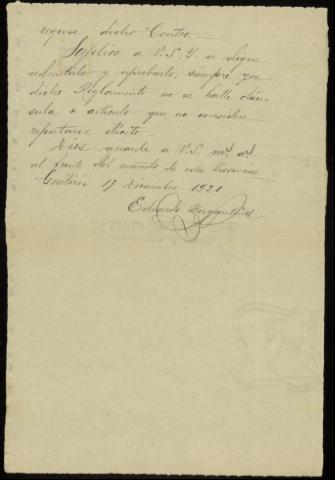 regirse dicho Centro.
Suplico a V.S.Y. se digne
admitirlo y aprobarlo, siempre que
dicho Reglamento no se halle cláu-
sula o artículo que no considere
repentarse ilícito.
Dios guarde a V.S. ms. as.
al frente del mundo de esta Provincia
17 Diciembre 1921
Eduardo